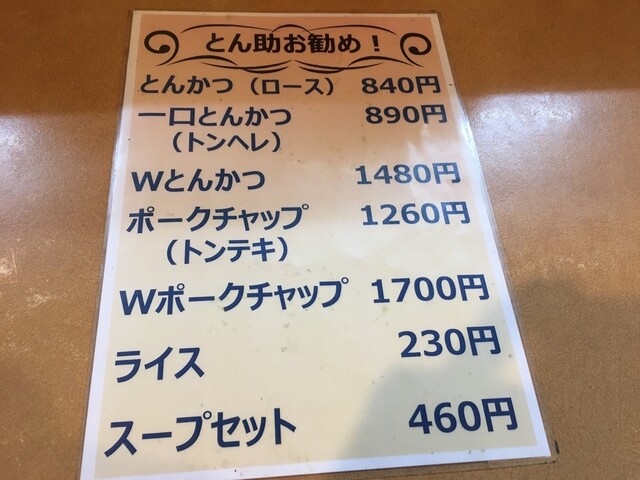 とん助お勧め！
とんかつ（ロース） 840円
一口とんかつ 890円
（トンヘレ）
Wとんかつ 1480円
ポークチャップ 1260円
（トンテキ）
Wポークチャップ 1700円
ライス 230円
スープセット 460円